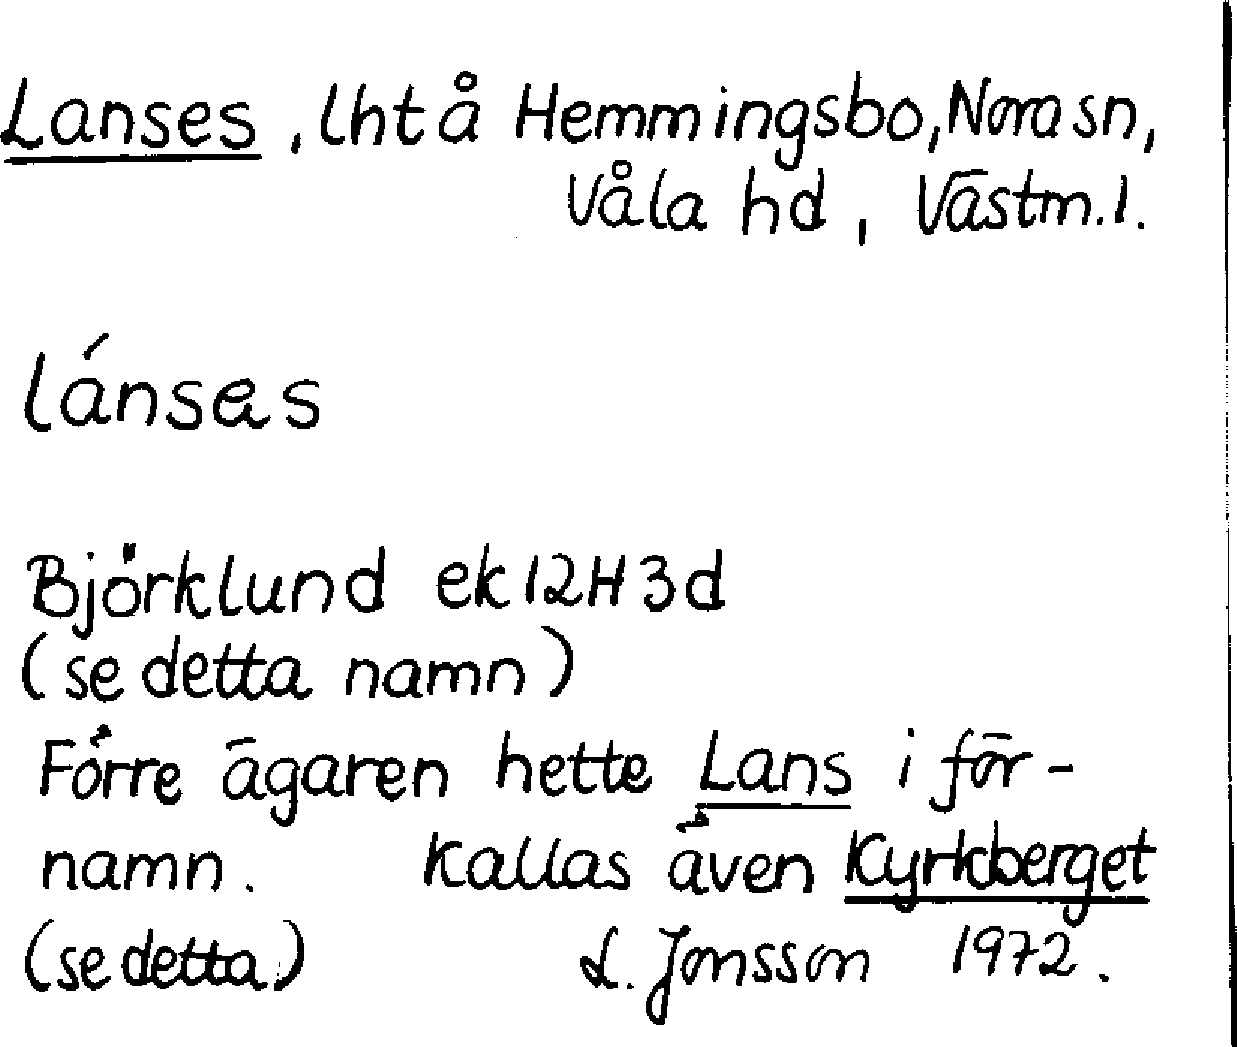 Lanses, lht å Hemmingsbo, Nora sn,
Våla hd, Västm. l.
lánses
Björklund ek 12H 3d
(se detta namn)
Förre ägaren hette Lans i för-
namn. Kallas även Kyrkberget
(se detta) L. Jonsson 1972.